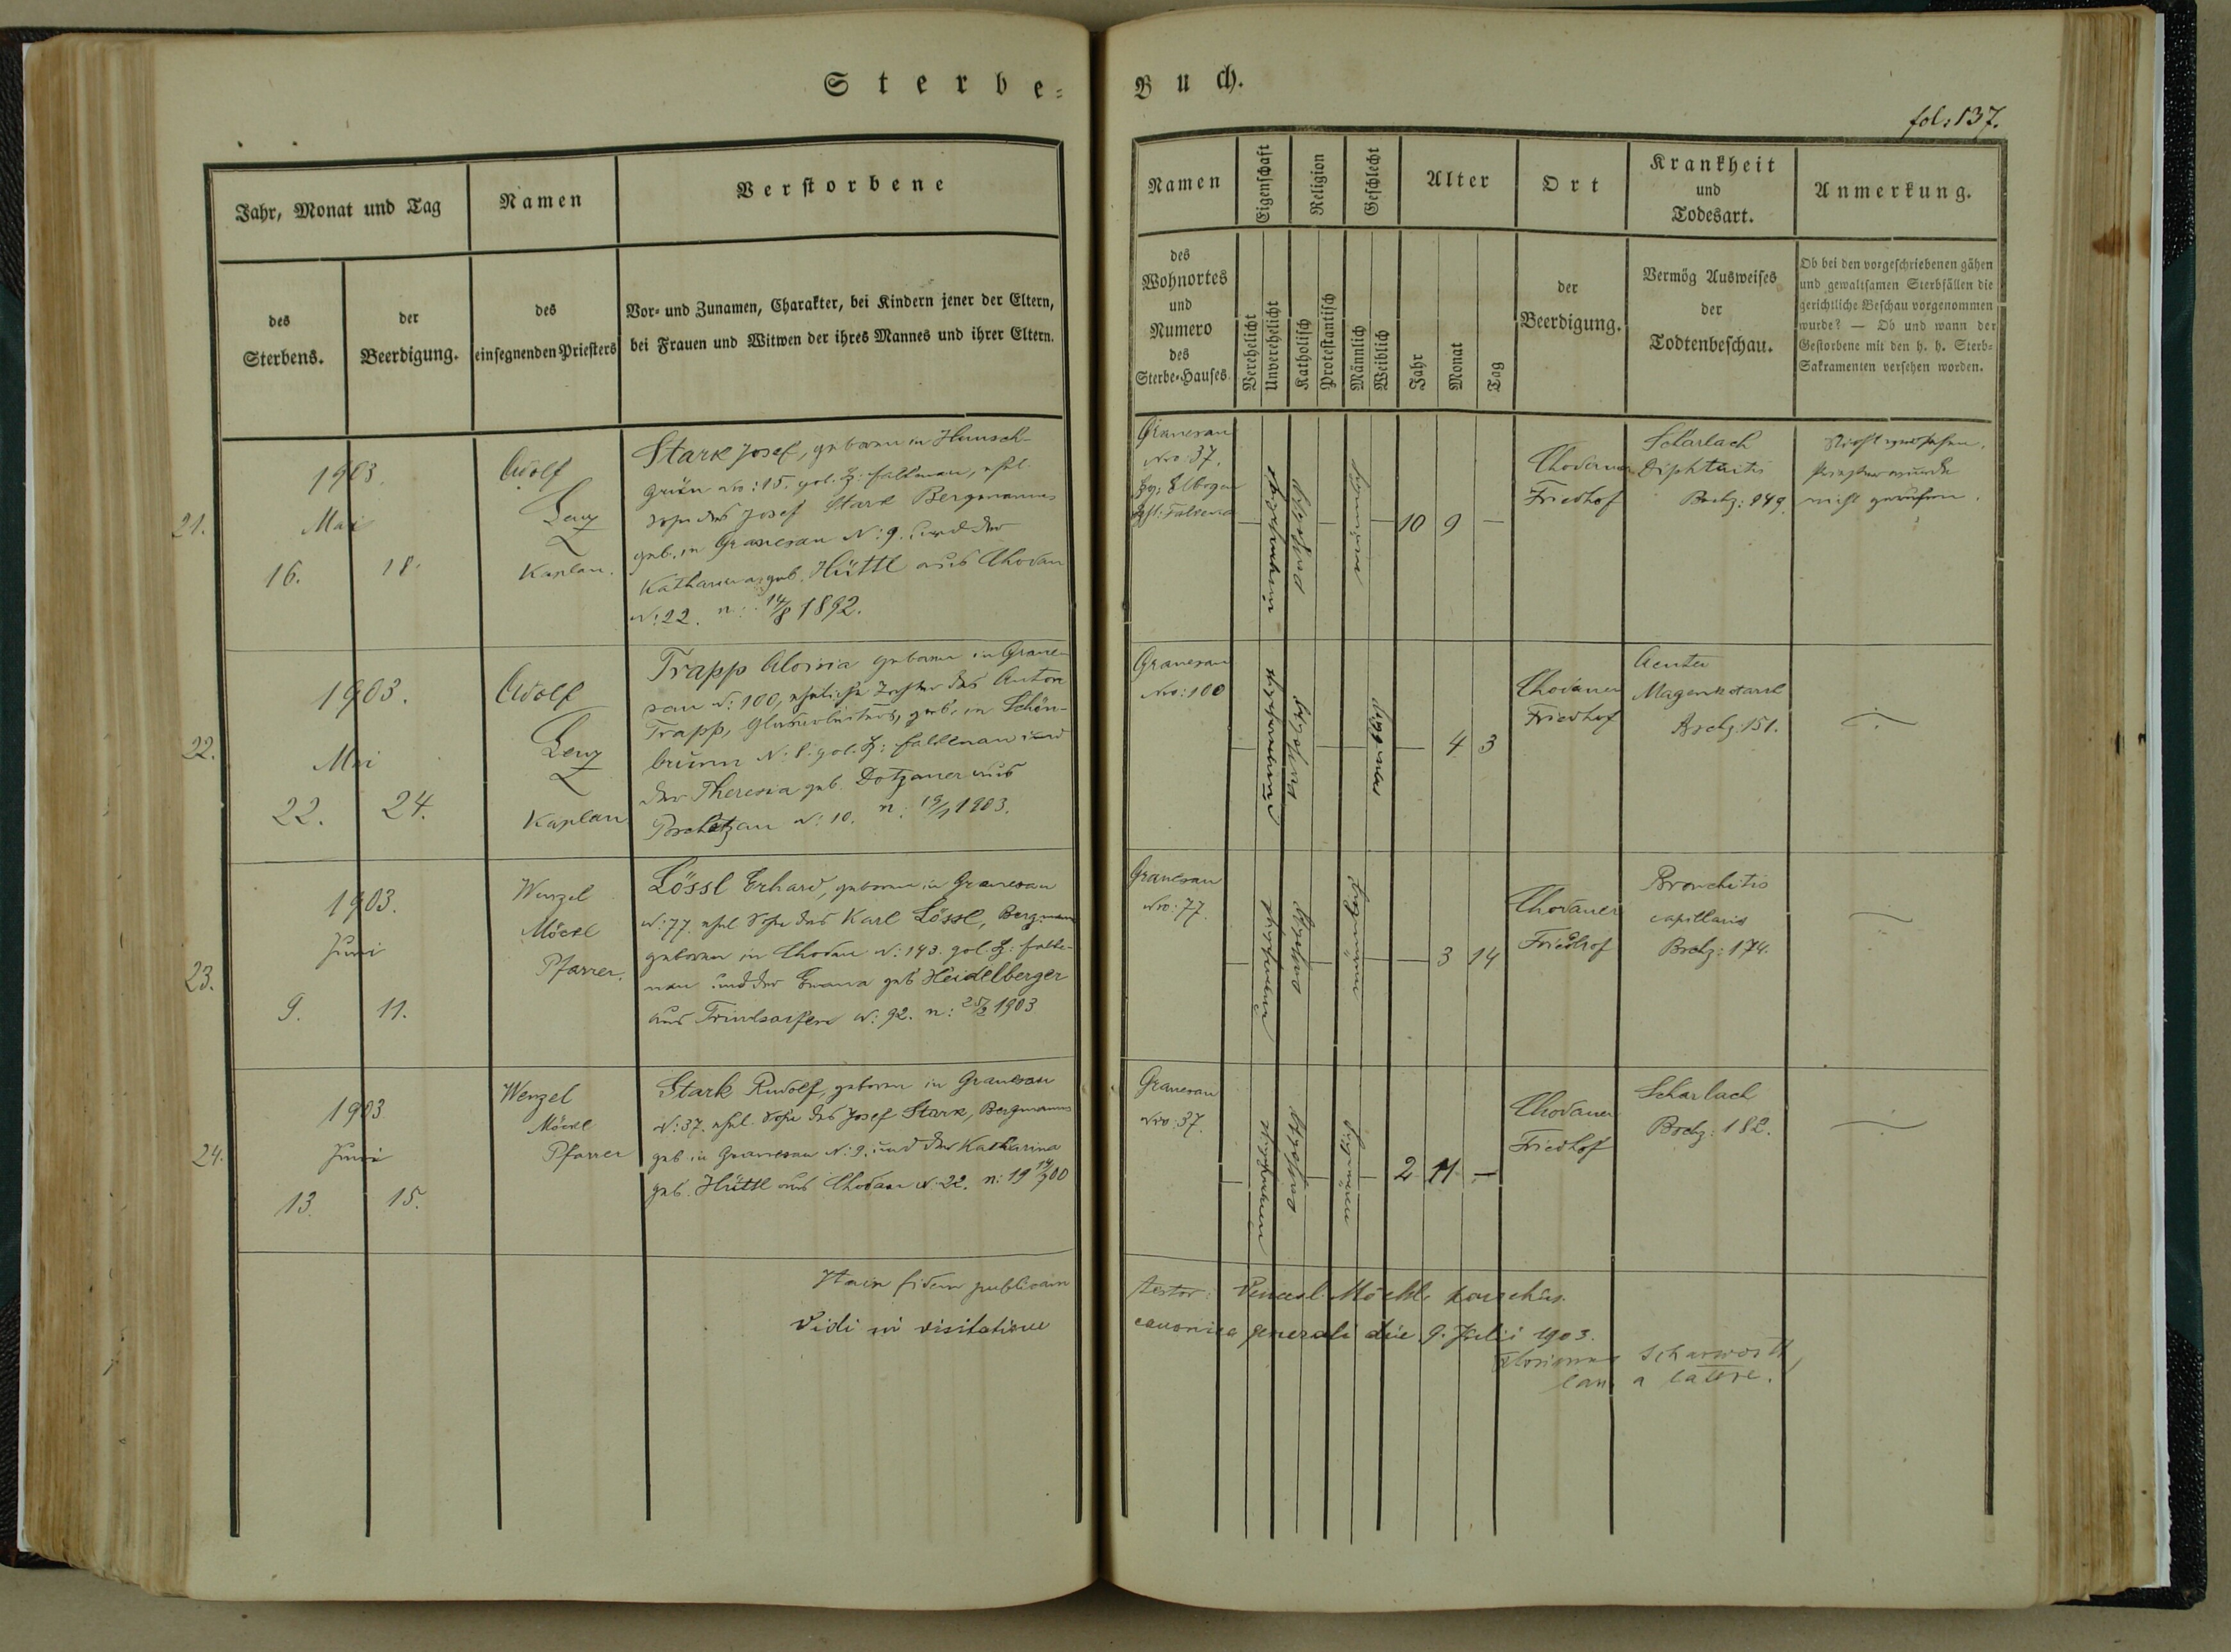 Sterbe-
Buch.
fol: 137.
Jahr, Monat und Tag
Namen
Verstorbene
des
Sterbens.
der
Beerdigung.
des
einsegnenden Priesters
Vor- und Zunamen, Charakter, bei Kindern jener der Eltern,
bei Frauen und Witwen der ihres Mannes und ihrer Eltern.
Namen
Eigenschaft
Religion
Geschlecht
Alter
Ort
Krankheit
und
Todesart.
Anmerkung.
des
Wohnortes
und
Numero
des
Sterbe-Hauses.
Verehelicht
Unverehelicht
Katholisch
Protestantisch
Männlich
Weiblich
Jahr
Monat
Tag
der
Beerdigung.
Vermög Ausweises
der
Todtenbeschau.
Ob bei den vorgeschriebenen gähen
und gewaltsamen Sterbfällen die
gerichtliche Beschau vorgenommen
wurde? — Ob und wann der
Gestorbene mit den h. h. Sterb-
Sakramenten versehen worden.
21.
1903.
Mai
16.
18.
Adolf
Lenz
Kaplan.
Stark Josef, geboren in
grün Nro: 15. gol. Bz: Falkenau, ehl.
Sohn des Josef Stark Bergmannes
geb. in Granesau N: 9. und der
Katharina geb. Hüttl aus Chodau
N: 22. n: 14/8 1892.
Granesau
Nro: 37.
Bz: Elbogen
unverehelicht
katholisch
männlich
10 9 —
Chodauer
Friedhof
Scharlach
Diphtritis
Bschz: 149.
Nicht versehen,
Priester wurde
nicht gerufen.
22.
1903.
Mai
22.
24.
Adolf
Lenz
Kaplan
Trapp Aloisia geboren in Grane-
sau N: 100, eheliche Tochter des Anton
Trapp, geb. in Schön-
brunn N: 8. gol. Bz: Falkenau und
der Theresia geb. Dotzauer aus
Poschetzau N: 10. n: 19/1 1903.
Granesau
Nro: 100
unverehelicht
katholisch
weiblich
— 4 3
Chodauer
Friedhof
Acuter
Magenkatarrh
Bschz: 151.
23.
1903.
Juni
9.
11.
Wenzel
Möckl
Pfarrer.
Lössl Erhard, geboren in Granesau
N: 77. ehl Sohn des Karl Lössl, Bergmann
geboren in Chodau N: 143. gol. Bz: Falke-
nau und der Emma geb Heidelberger
aus N: 92. n: 25/2 1903
Granesau
Nro: 77.
unverehelicht
katholisch
männlich
— 3 14
Chodauer
Friedhof
Bronchitis
capillaris
Bschz: 174.
24.
1903
Juni
13.
15.
Wenzel
Möckl
Pfarrer
Stark Rudolf, geboren in Granesau
N: 37. ehel. Sohn des Josef Stark, Bergmannes
geb in Granesau N: 9. und der Katharina
geb. Hüttl aus Chodau N: 22. n: 19 14/7 00
Granesau
Nro: 37.
unverehelicht
katholisch
männlich
2 11 —
Chodauer
Friedhof
Scharlach
Bschz: 182.
fidem publicam
testor: Vencesl. Möckl, parochus.
Vidi in visitatione
canonica generali die 9. Julii 1903.
a latere.